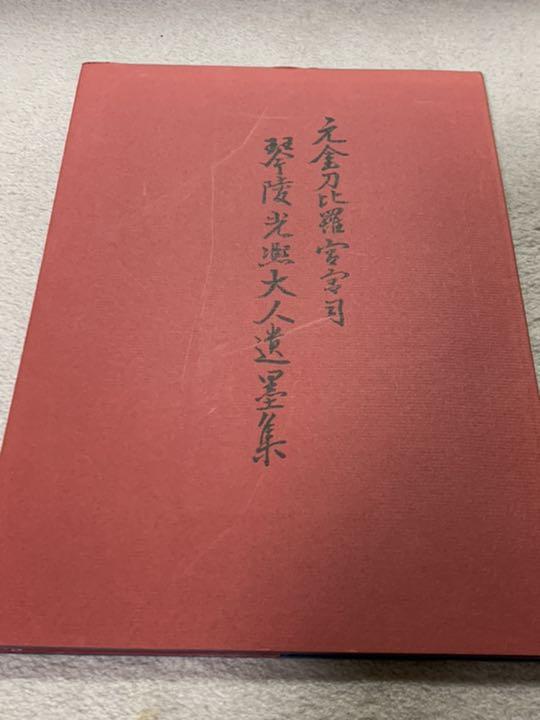 元金刀比羅宮宮司
琴陵光熙大人遺墨集